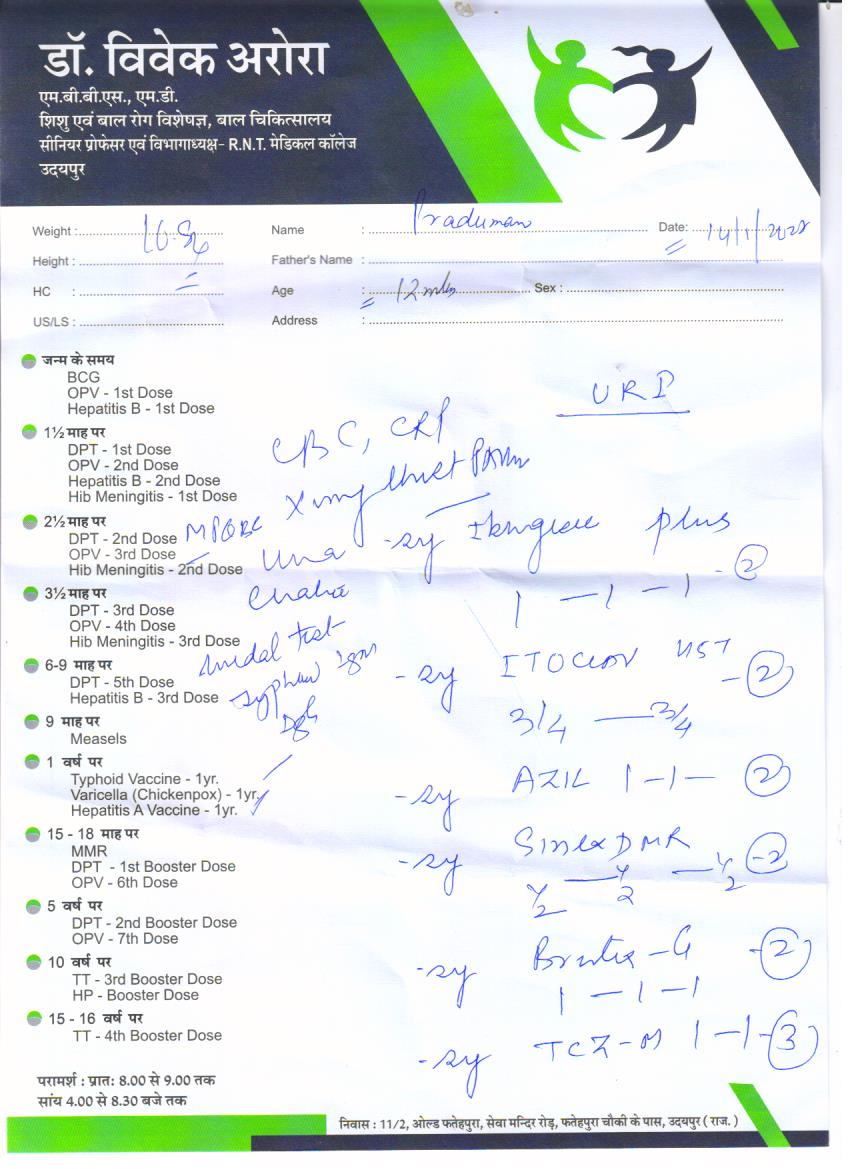 डॉ. विवेक अरोरा
एम.बी.बी.एस., एम.डी.
शिशु एवं बाल रोग विशेषज्ञ, बाल चिकित्सालय
सीनियर प्रोफेसर एवं विभागाध्यक्ष- R.N.T. मेडिकल कॉलेज
उदयपुर
Weight :
Name : Praduman
Date: 14/1/
Height :
Father's Name :
HC :
Age : 12
Sex :
US/LS :
Address :
जन्म के समय
BCG
OPV - 1st Dose
Hepatitis B - 1st Dose
URI
1½ माह पर
DPT - 1st Dose
OPV - 2nd Dose
Hepatitis B - 2nd Dose
Hib Meningitis - 1st Dose
CBC, CRP
X
2½ माह पर
DPT - 2nd Dose
OPV - 3rd Dose
Hib Meningitis - 2nd Dose
- sy plus
1 - 1 - 1 - 2
3½ माह पर
DPT - 3rd Dose
OPV - 4th Dose
Hib Meningitis - 3rd Dose
test
6-9 माह पर
DPT - 5th Dose
Hepatitis B - 3rd Dose
- sy - 2
3/4 — 3/4
9 माह पर
Measels
1 वर्ष पर
Typhoid Vaccine - 1yr.
Varicella (Chickenpox) - 1yr.
Hepatitis A Vaccine - 1yr.
- sy AZIL 1 - 1 - 2
15 - 18 माह पर
MMR
DPT - 1st Booster Dose
OPV - 6th Dose
- sy DMR - 2
½ — ½ — ½
5 वर्ष पर
DPT - 2nd Booster Dose
OPV - 7th Dose
10 वर्ष पर
TT - 3rd Booster Dose
HP - Booster Dose
- sy - 2
1 - 1 - 1
15 - 16 वर्ष पर
TT - 4th Booster Dose
- sy TCZ-M 1 - 1 - 3
परामर्श : प्रातः 8.00 से 9.00 तक
सांय 4.00 से 8.30 बजे तक
निवास : 11/2, ओल्ड फतेहपुरा, सेवा मन्दिर रोड़, फतेहपुरा चौकी के पास, उदयपुर ( राज. )